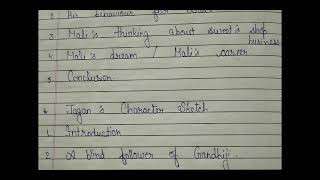 2. Air behaviour for
3. Mali's thinking about sweet's shop business
4. Mali's dream / Mali's career
5. Conclusion.
* Jagan's Character Sketch
1. Introduction
2. A blind follower of Gandhiji.